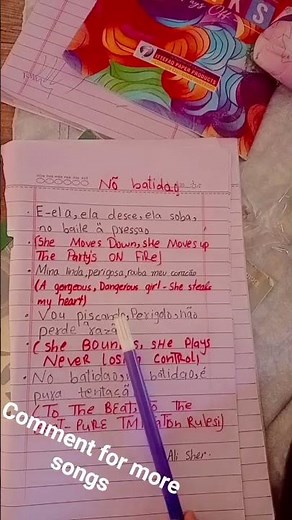 ITTEFAQ PAPER PRODUCTS
Nõ batidão
E-ela, ela desce, ela soba,
no baile á pressão
(She Moves Down, she Moves up
The Party's ON FiRe)
Mina linda, perigosa, rouba meu coração
(A gorgeous, Dangerous girl - She steals
my heart)
Vou piscando, Perigoto, não
perde a razã
(she Bounces, she plays
Never Losing Control)
No batidão, batidão, é
pura tentaçã
(To The BEAT, To The
PURE TM ON RulesI)
Ali Sher.
Comment for more
songs